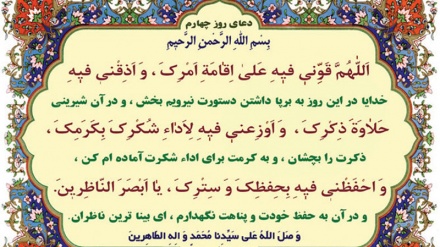 دعای روز چهارم
بِسْمِ اللهِ الرَّحْمنِ الرَّحیمِ
اَللّهُمَّ قَوِّنی فیهِ عَلیٰ اِقامَةِ اَمْرِکَ ، وَ اَذِقْنی فیهِ
خدایا در این روز به برپا داشتن دستورت نیرویم بخش ، و در آن شیرینی
حَلاوَةَ ذِکْرِکَ ، وَ اَوْزِعْنی فیهِ لِاَداءِ شُکْرِکَ بِکَرَمِکَ ،
ذکرت را بچشان ، و به کرمت برای اداء شکرت آماده ام کن ،
وَ احْفَظْنی فیهِ بِحِفْظِکَ وَ سِتْرِکَ ، یا اَبْصَرَ النّاظِرینَ.
و در آن به حفظ خودت و پناهت نگهدارم ، ای بینا ترین ناظران.
وَ صَلَّ اللهُ عَلی سَیِّدِنا مُحَمَّد وَ الِهِ الطّاهِرینَ